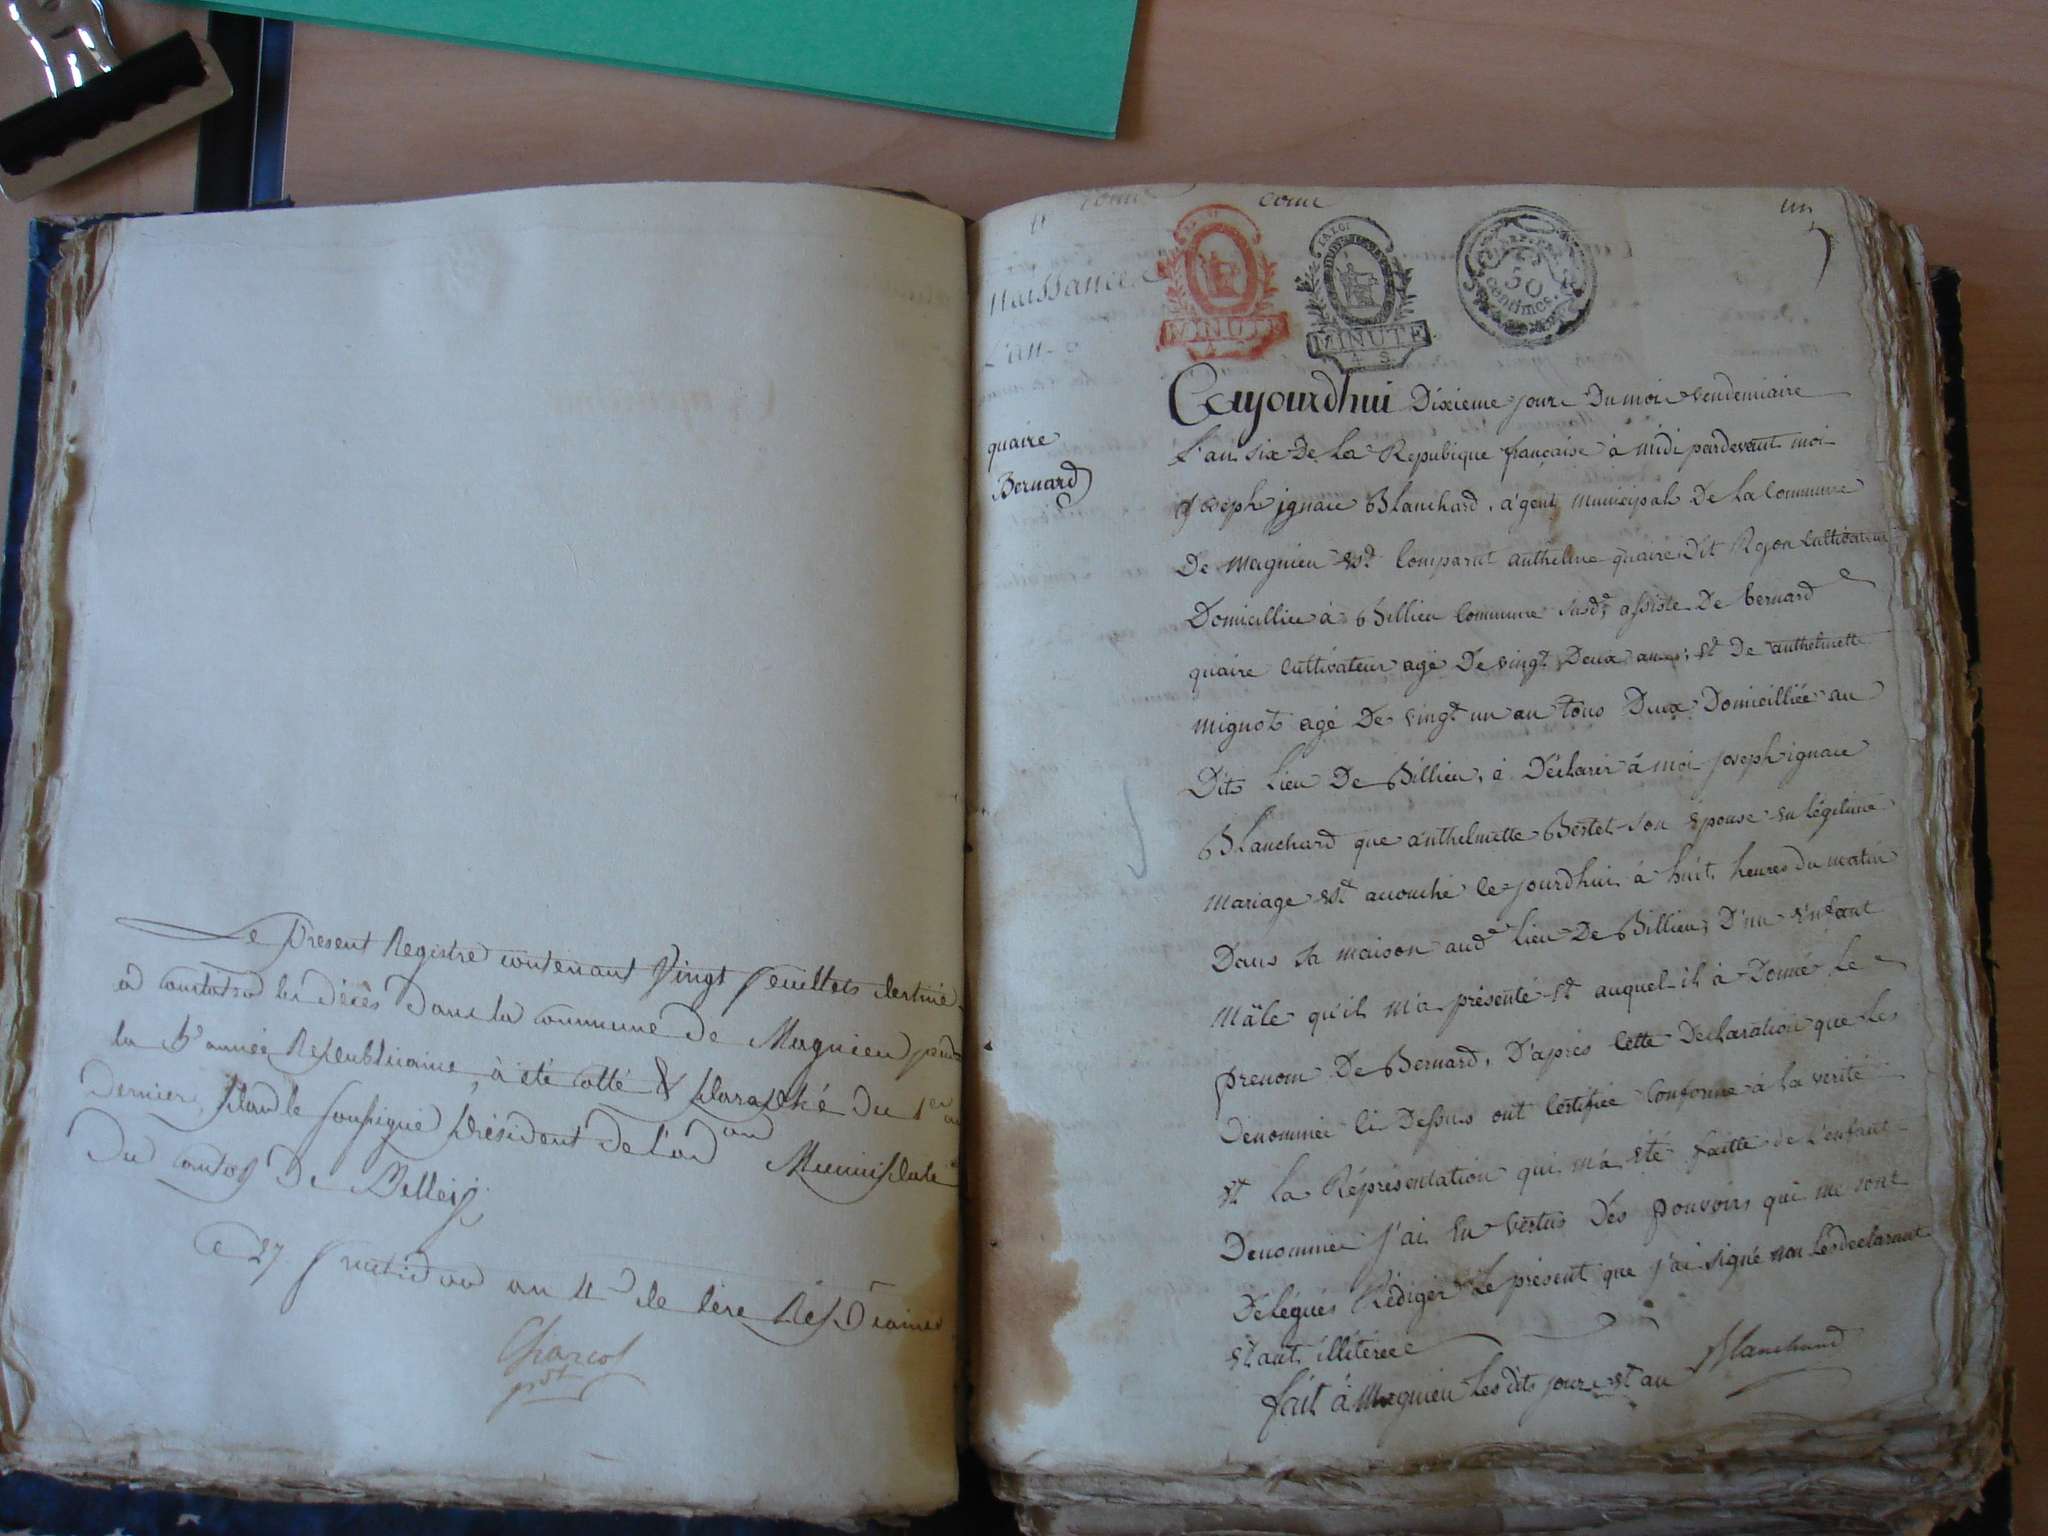 Le present Registre contenant vingt feuillets destiné
a constater les décès dans la commune de Magnieu
la 5e année Republicaine, à été cotté & paraphé du 1er au
dernier, par le soussigné président de l'adon Municipale
du canton de Belley
Ce 27 fructidor an 4e de l'ere Rep.
Charcot
pdt
Naissance
L'an
quaire
Bernard
LA LOI
MINUTE
LA LOI
MINUTE
4 S
50
centimes
un
Cejourdhui Dixieme jour Du moi vendemiaire
L'an six De La Republique française à midi pardevant moi
Joseph ignace Blanchard, agent municipal De La Commune
De magnieu est Comparut anthelme quaire Dit Rojon Cultivateur
Domicillié à Billieu Commune susde, assisté De bernard
quaire Cultivateur agé De vingt Deux ans, et De anthelmette
mignot agé De vingt un an tous Deux Domicilliée au
Dits Lieu De Billieu, à Déclarer à moi Joseph ignace
Blanchard que anthelmette Bertet son épouse en légitime
mariage est acouché Ce jourdhui à huit heures du matin
Dans sa maison aude Lieu De Billieu, D'un enfant
mâle qu'il m'a présenté et auquel il à Donné Le
prenom De Bernard, D'après Cette Declaration que Les
Denommée Ci Dessus ont Certifiée Conforme à La verité
et La Réprésentation qui m'a été faitte de L'enfant
Denommée j'ai en vertus Des pouvoirs qui me sont
Delégués Rédiger Le présent que j'ai signé non Les declarant
etant illiterée
fait à magnieu Les dits jour et an Blanchard